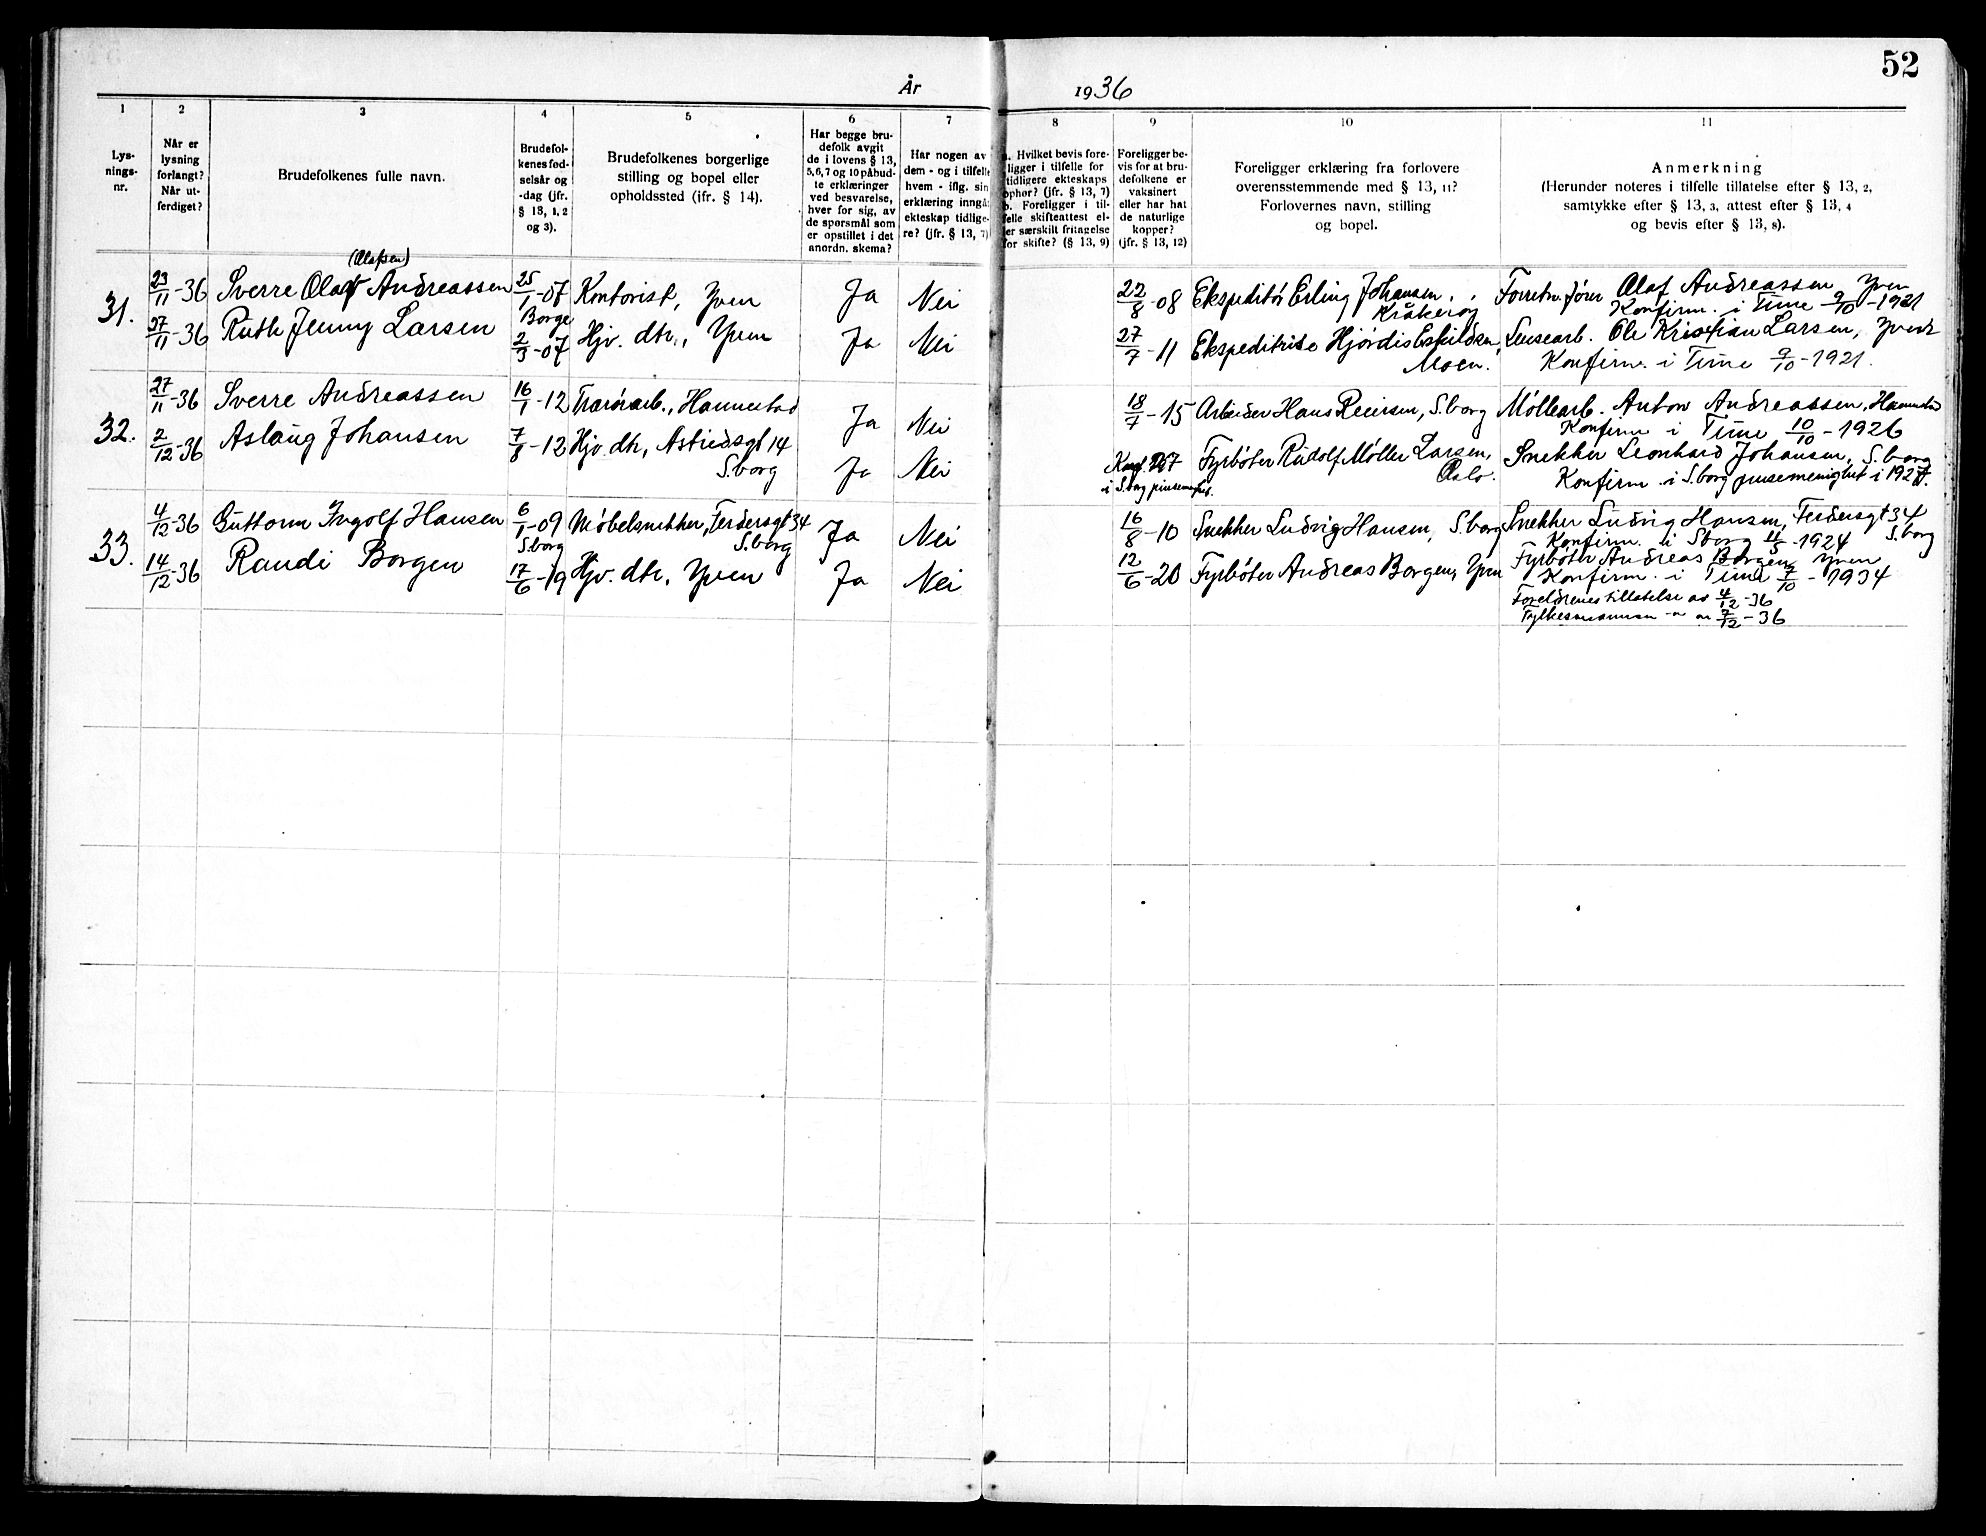 52
År 1936
1
Lys-
nings-
nr.
2
Når er
lysning
forlangt?
Når ut-
ferdiget?
3
Brudefolkenes fulle navn.
4
Brudefol-
kenes fød-
selsår og
-dag (jfr.
§ 13, 1, 2
og 3).
5
Brudefolkenes borgerlige
stilling og bopel eller
opholdssted (jfr. § 14).
6
Har begge bru-
defolk avgit
de i lovens § 13,
5,6,7 og 10 påbud-
te erklæringer
ved besvarelse,
hver for sig, av
de spørsmål som
er opstillet i det
anordn. skema?
7
Har nogen av
dem - og i tilfelle
hvem - iflg. sin
erklæring inngå
ekteskap tidlige-
re? (jfr. § 13, 7)
8
a. Hvilket bevis fore-
ligger i tilfelle for
tidligere ekteskaps
ophør? (jfr. § 13, 7)
b. Foreligger i til-
felle skifteattest el-
er særskilt fritagelse
for skifte? (§ 13, 9)
9
Foreligger be-
vis for at bru-
defolkene er
vaksinert
eller har hat
de naturlige
kopper?
(jfr. § 13, 12)
10
Foreligger erklæring fra forlovere
overensstemmende med § 13, 11?
Forlovernes navn, stilling
og bopel.
11
Anmerkning
(Herunder noteres i tilfelle tillatelse efter § 13, 2,
samtykke efter § 13, 3, attest efter § 13, 4
og bevis efter § 13, 8).
31.
23/11-36
27/11-36
(Olafsen)
Sverre Olaf Andreassen
Ruth Jenny Larsen
25/1-07
Borge
2/3-07
Kontorist, Yven
Hjv. dtr., Yven
Ja
Ja
Nei
Nei
22/8-08
27/7-11
Ekspeditør Erling Johansen,
Kråkerøy
Ekspeditrise Hjørdis Eskildsen,
Moen.
Forretn.fører Olaf Andreassen Yven
Konfirm. i Tune 9/10-1921
Lensearb. Ole Kristian Larsen, Yven
Konfirm. i Tune 9/10-1921.
32.
27/11-36
2/12-36
Sverre Andreassen
Aslaug Johansen
16/1-12
7/8-12
Hannestad
Hjv. dtr, Astridsgt 14
S.borg
Ja
Ja
Nei
Nei
18/7-15
Konf. 27
i S.borg pinsemenighet.
Arbeider Hans Reiersen, S.borg
Fyrbøter Rudolf Møller Larsen,
Oslo.
Møllearb. Anton Andreassen, Hannestad
Konfirm i Tune 10/10-1926
Snekker Leonhard Johansen, S.borg
Konfirm. i S.borg pinsemenighet i 1927.
33.
4/12-36
14/12-36
Guttorm Ingolf Hansen
Randi Borgen
6/1-09
S.borg
17/6-19
Møbelsnekker, Ferdersgt 34
S.borg
Hjv. dtr, Yven
Ja
Ja
Nei
Nei
16/8-10
12/6-20
Snekker Ludvig Hansen, S borg
Fyrbøter Andreas Borgen, Yven
Snekker Ludvig Hansen, Ferdersgt 34
S.borg
Konfirm. i S.borg 4/5-1924
Fyrbøter Andreas Borgen, Yven
Konfirm. i Tune 7/10-1934
Foreldrenes tillatelse av 4/12-36
Fylkesmannen -"- av 7/12-36